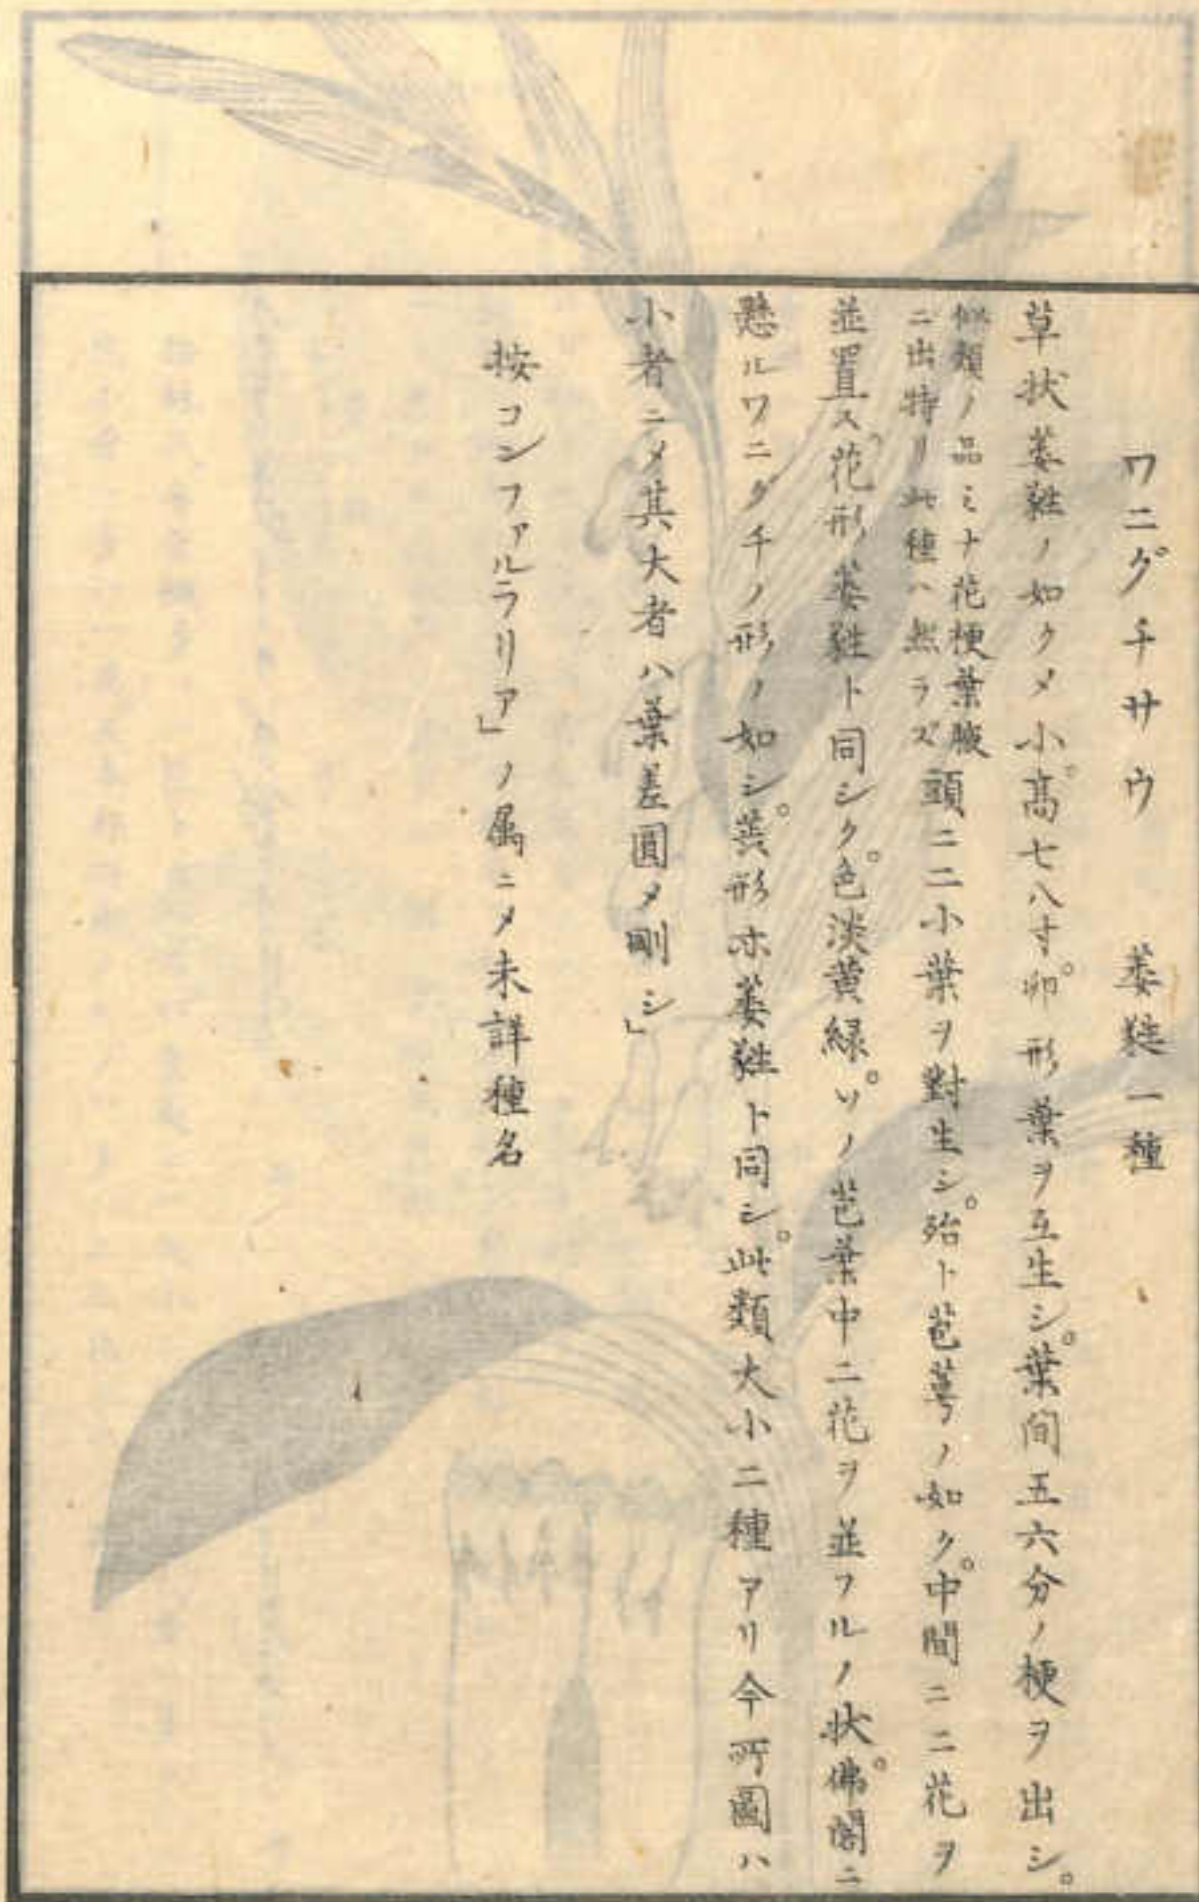 ワニグチサウ　萎蕤一種
草状萎蕤ノ如クメ小。高七八寸。卵形葉ヲ互生シ。葉間五六分ノ梗ヲ出シ。
似類ノ品ミナ花梗葉腋
ニ出特リ此種ハ然ラズ
頭ニ二小葉ヲ對生シ。殆ト苞萼ノ如ク。中間ニ二花ヲ
並置ス。花形萎蕤ト同シク。色淡黄緑。ソノ苞葉中二花ヲ並フルノ状。佛閣ニ
懸ルワニグチノ形ノ如シ。蒴形亦萎蕤ト同シ。此類大小二種アリ今所圖ハ
小者ニメ其大者ハ葉差圓メ剛シ」
按コンファルラリア」ノ属ニメ未詳種名